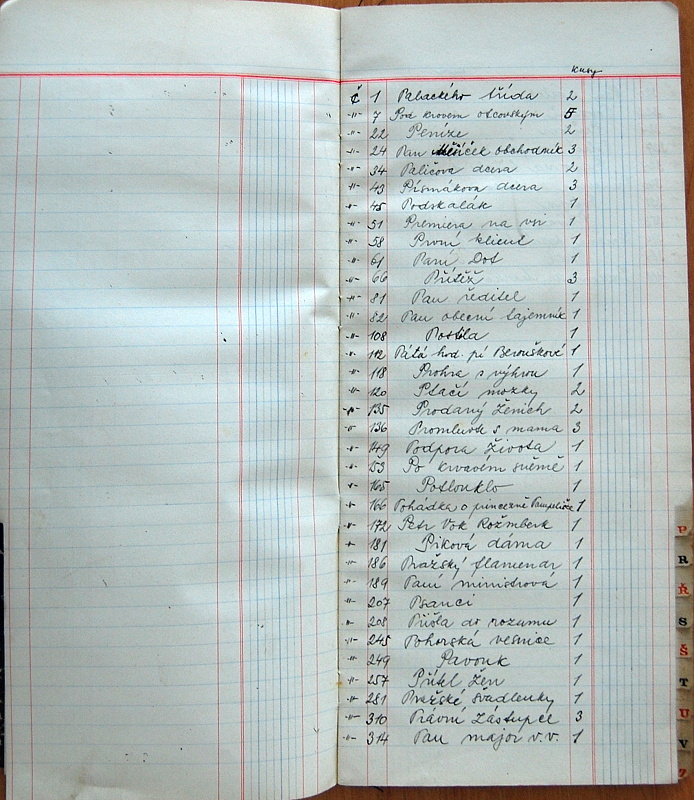 kusy
č 1 Palackého třída 2
-"- 7 Pod krovem otcovským 5
-"- 22 Peníze 2
-"- 24 Pan Měsíček obchodník 3
-"- 34 Paličova dcera 2
-"- 43 Písmákova dcera 3
-"- 45 Podskalák 1
-"- 51 Premiera na vsi 1
-"- 58 První klient 1
-"- 61 Paní Dot 1
-"- 66 Přítěž 3
-"- 81 Pan ředitel 1
-"- 82 Pan obecní tajemník 1
-"- 108 Postila 1
-"- 112 Pátá hod. pí Berouškové 1
-"- 118 Prohra s výhrou 1
-"- 120 Ptačí mozky 2
-"- 135 Prodaný ženich 2
-"- 136 Promluvte s mama 3
-"- 149 Podpora života 1
-"- 153 Po krvavém sněmě 1
-"- 165 Potlouklo 1
-"- 166 Pohádka o princezně Pampelišce 1
-"- 172 Petr Vok Rožmberk 1
-"- 181 Piková dáma 1
-"- 186 Pražský flamendr 1
-"- 189 Paní ministrová 1
-"- 207 Psanci 1
-"- 208 Přišla do rozumu 1
-"- 245 Pohorská vesnice 1
-"- 249 Pavouk 1
-"- 257 Přítel žen 1
-"- 281 Pražské švadlenky 1
-"- 310 Právní zástupce 3
-"- 314 Pan major v.v. 1
P
R
Ř
S
Š
T
U
V
Z